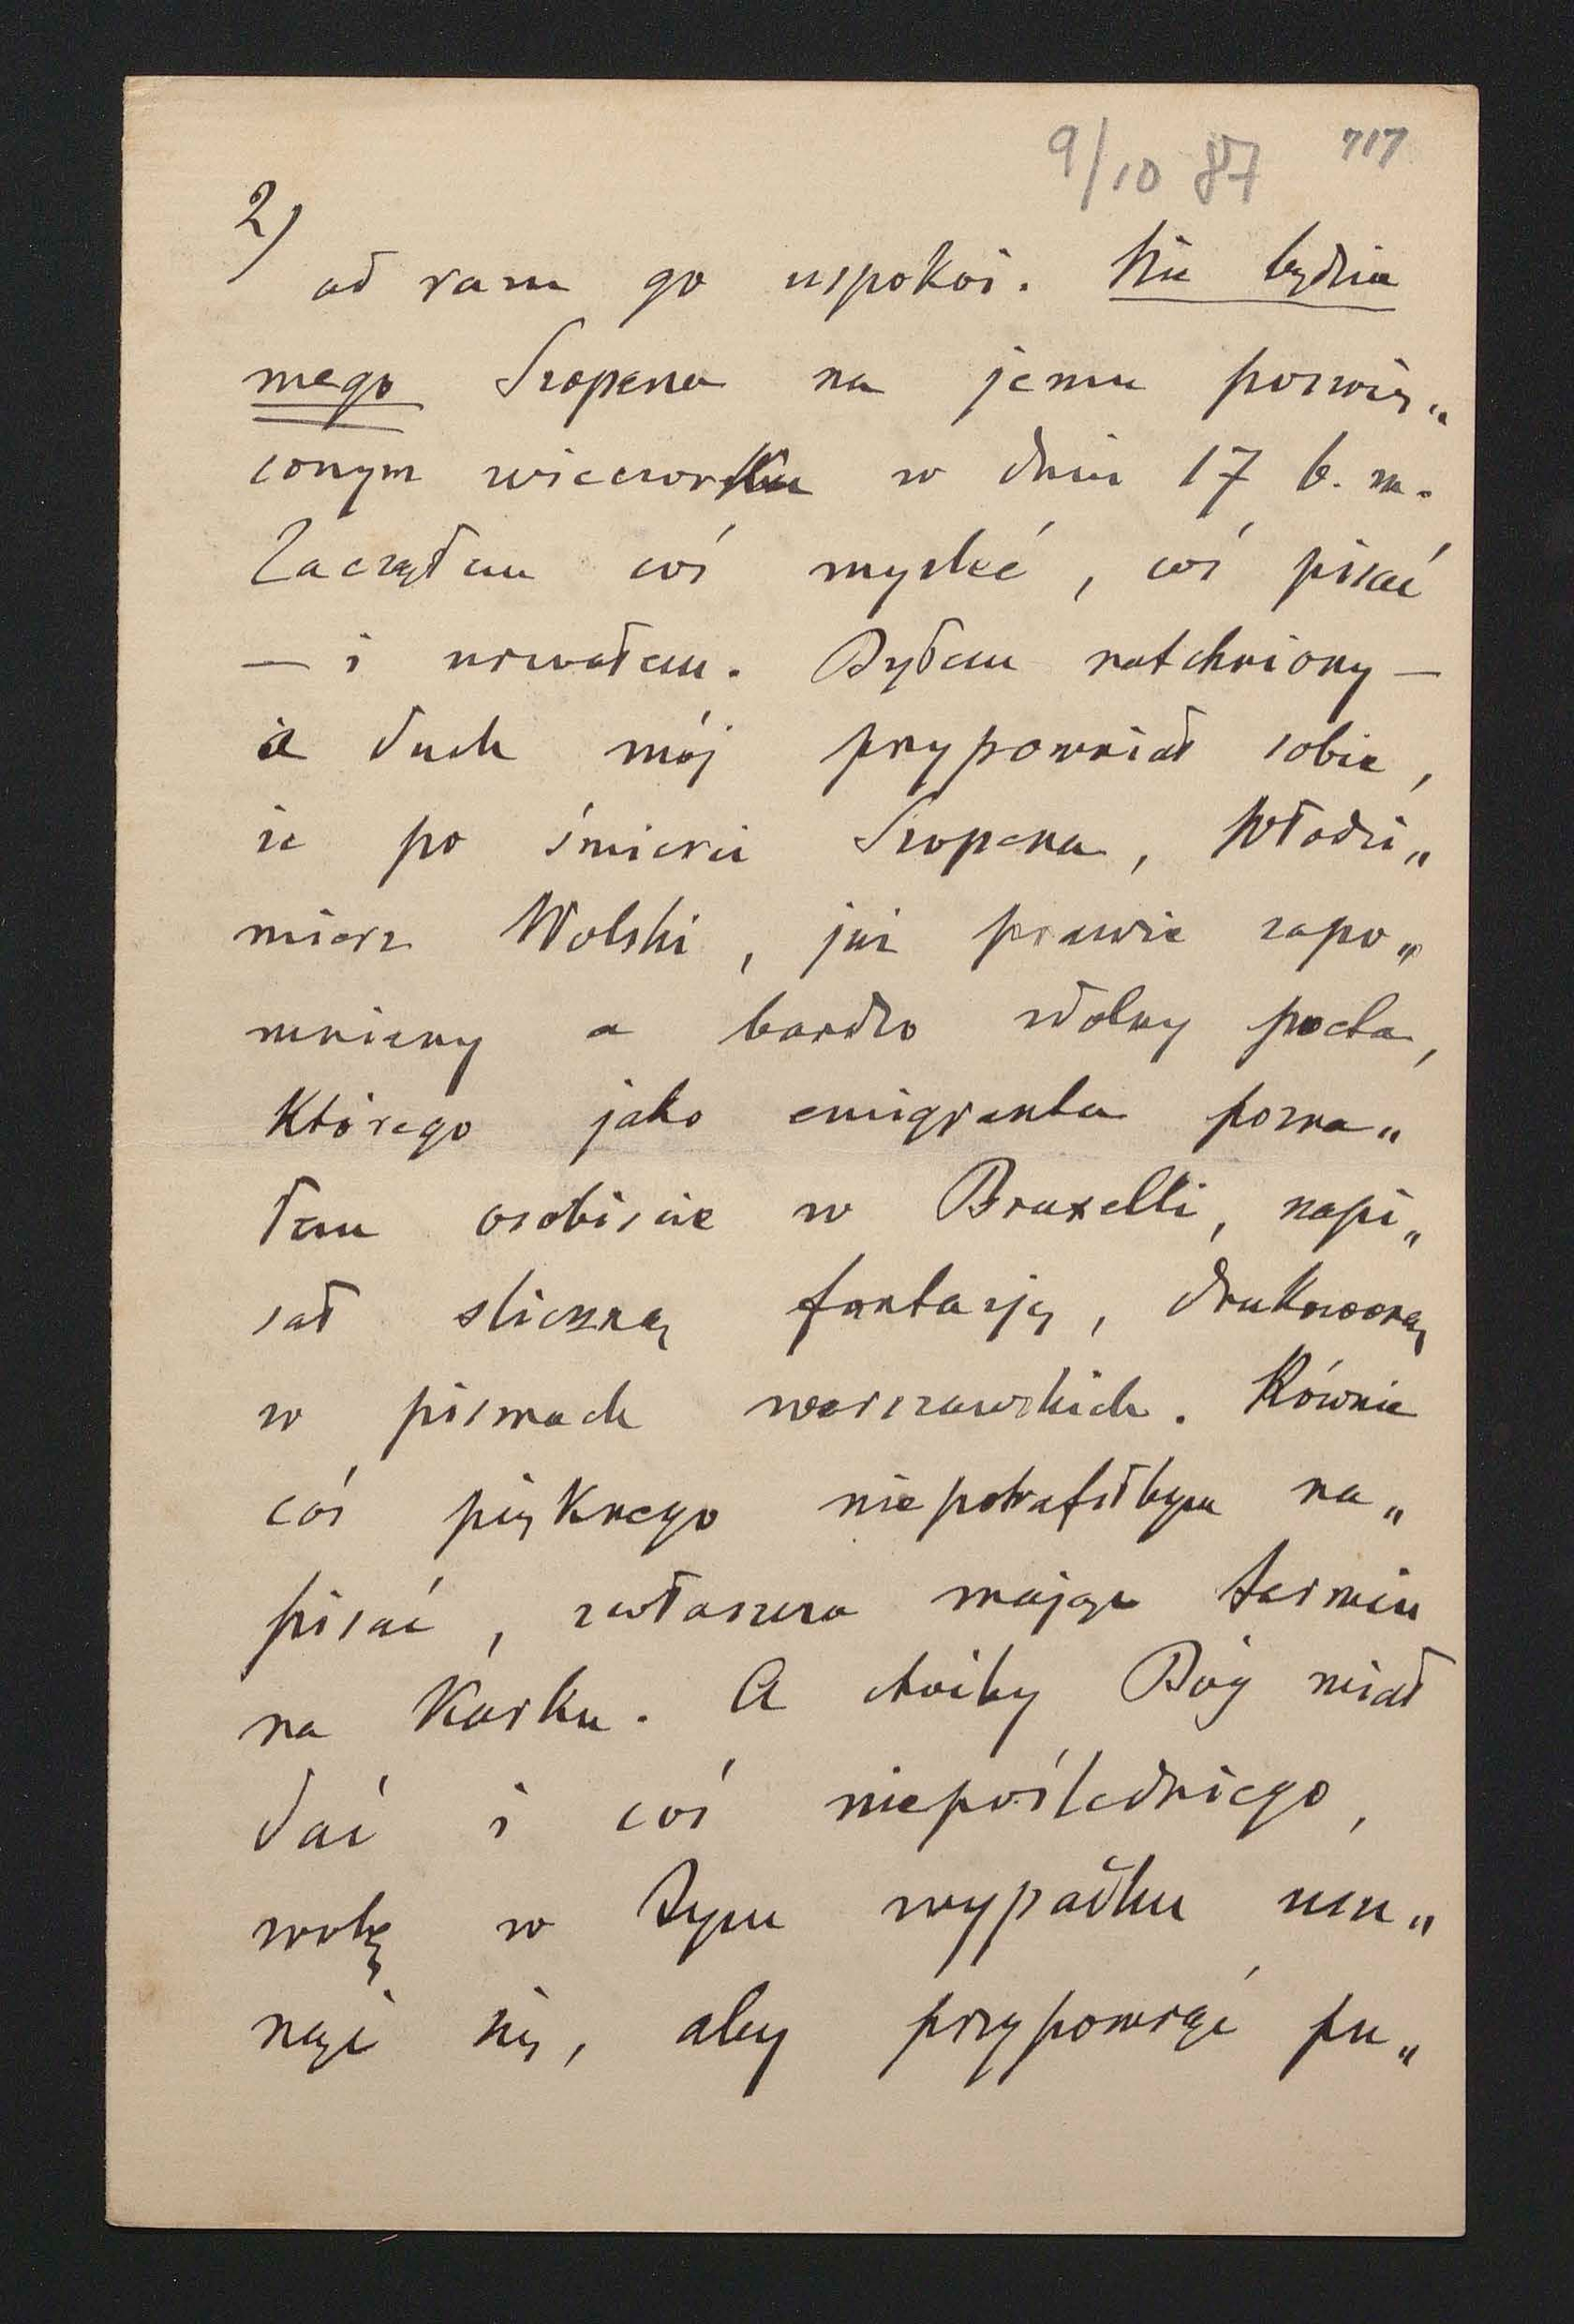 9/10 87 717
2)
od razu go uspokoi. Nie będzie
mego Szopena na jemu poświę„
conym wieczorku w dniu 17 b. m.
Zacząłem coś myśleć, coś pisać
— i urwałem. Byłem natchniony —
a duch mój przypomniał sobie,
że po śmierci Szopena, Włodzi„
mierz Wolski, już prawie zapo„
mniany a bardzo zdolny poeta,
którego jako emigranta pozna„
łem osobiście w Bruxelli, napi„
sał śliczną fantazję, drukowaną
w pismach warszawskich. Równie
coś pięknego niepotrafiłbym na„
pisać, zwłaszcza mając termin
na karku. A choćby Bóg miał
dać i coś niepośledniego,
wolę w tym wypadku usu„
nąć się, aby przypomnąć pu„